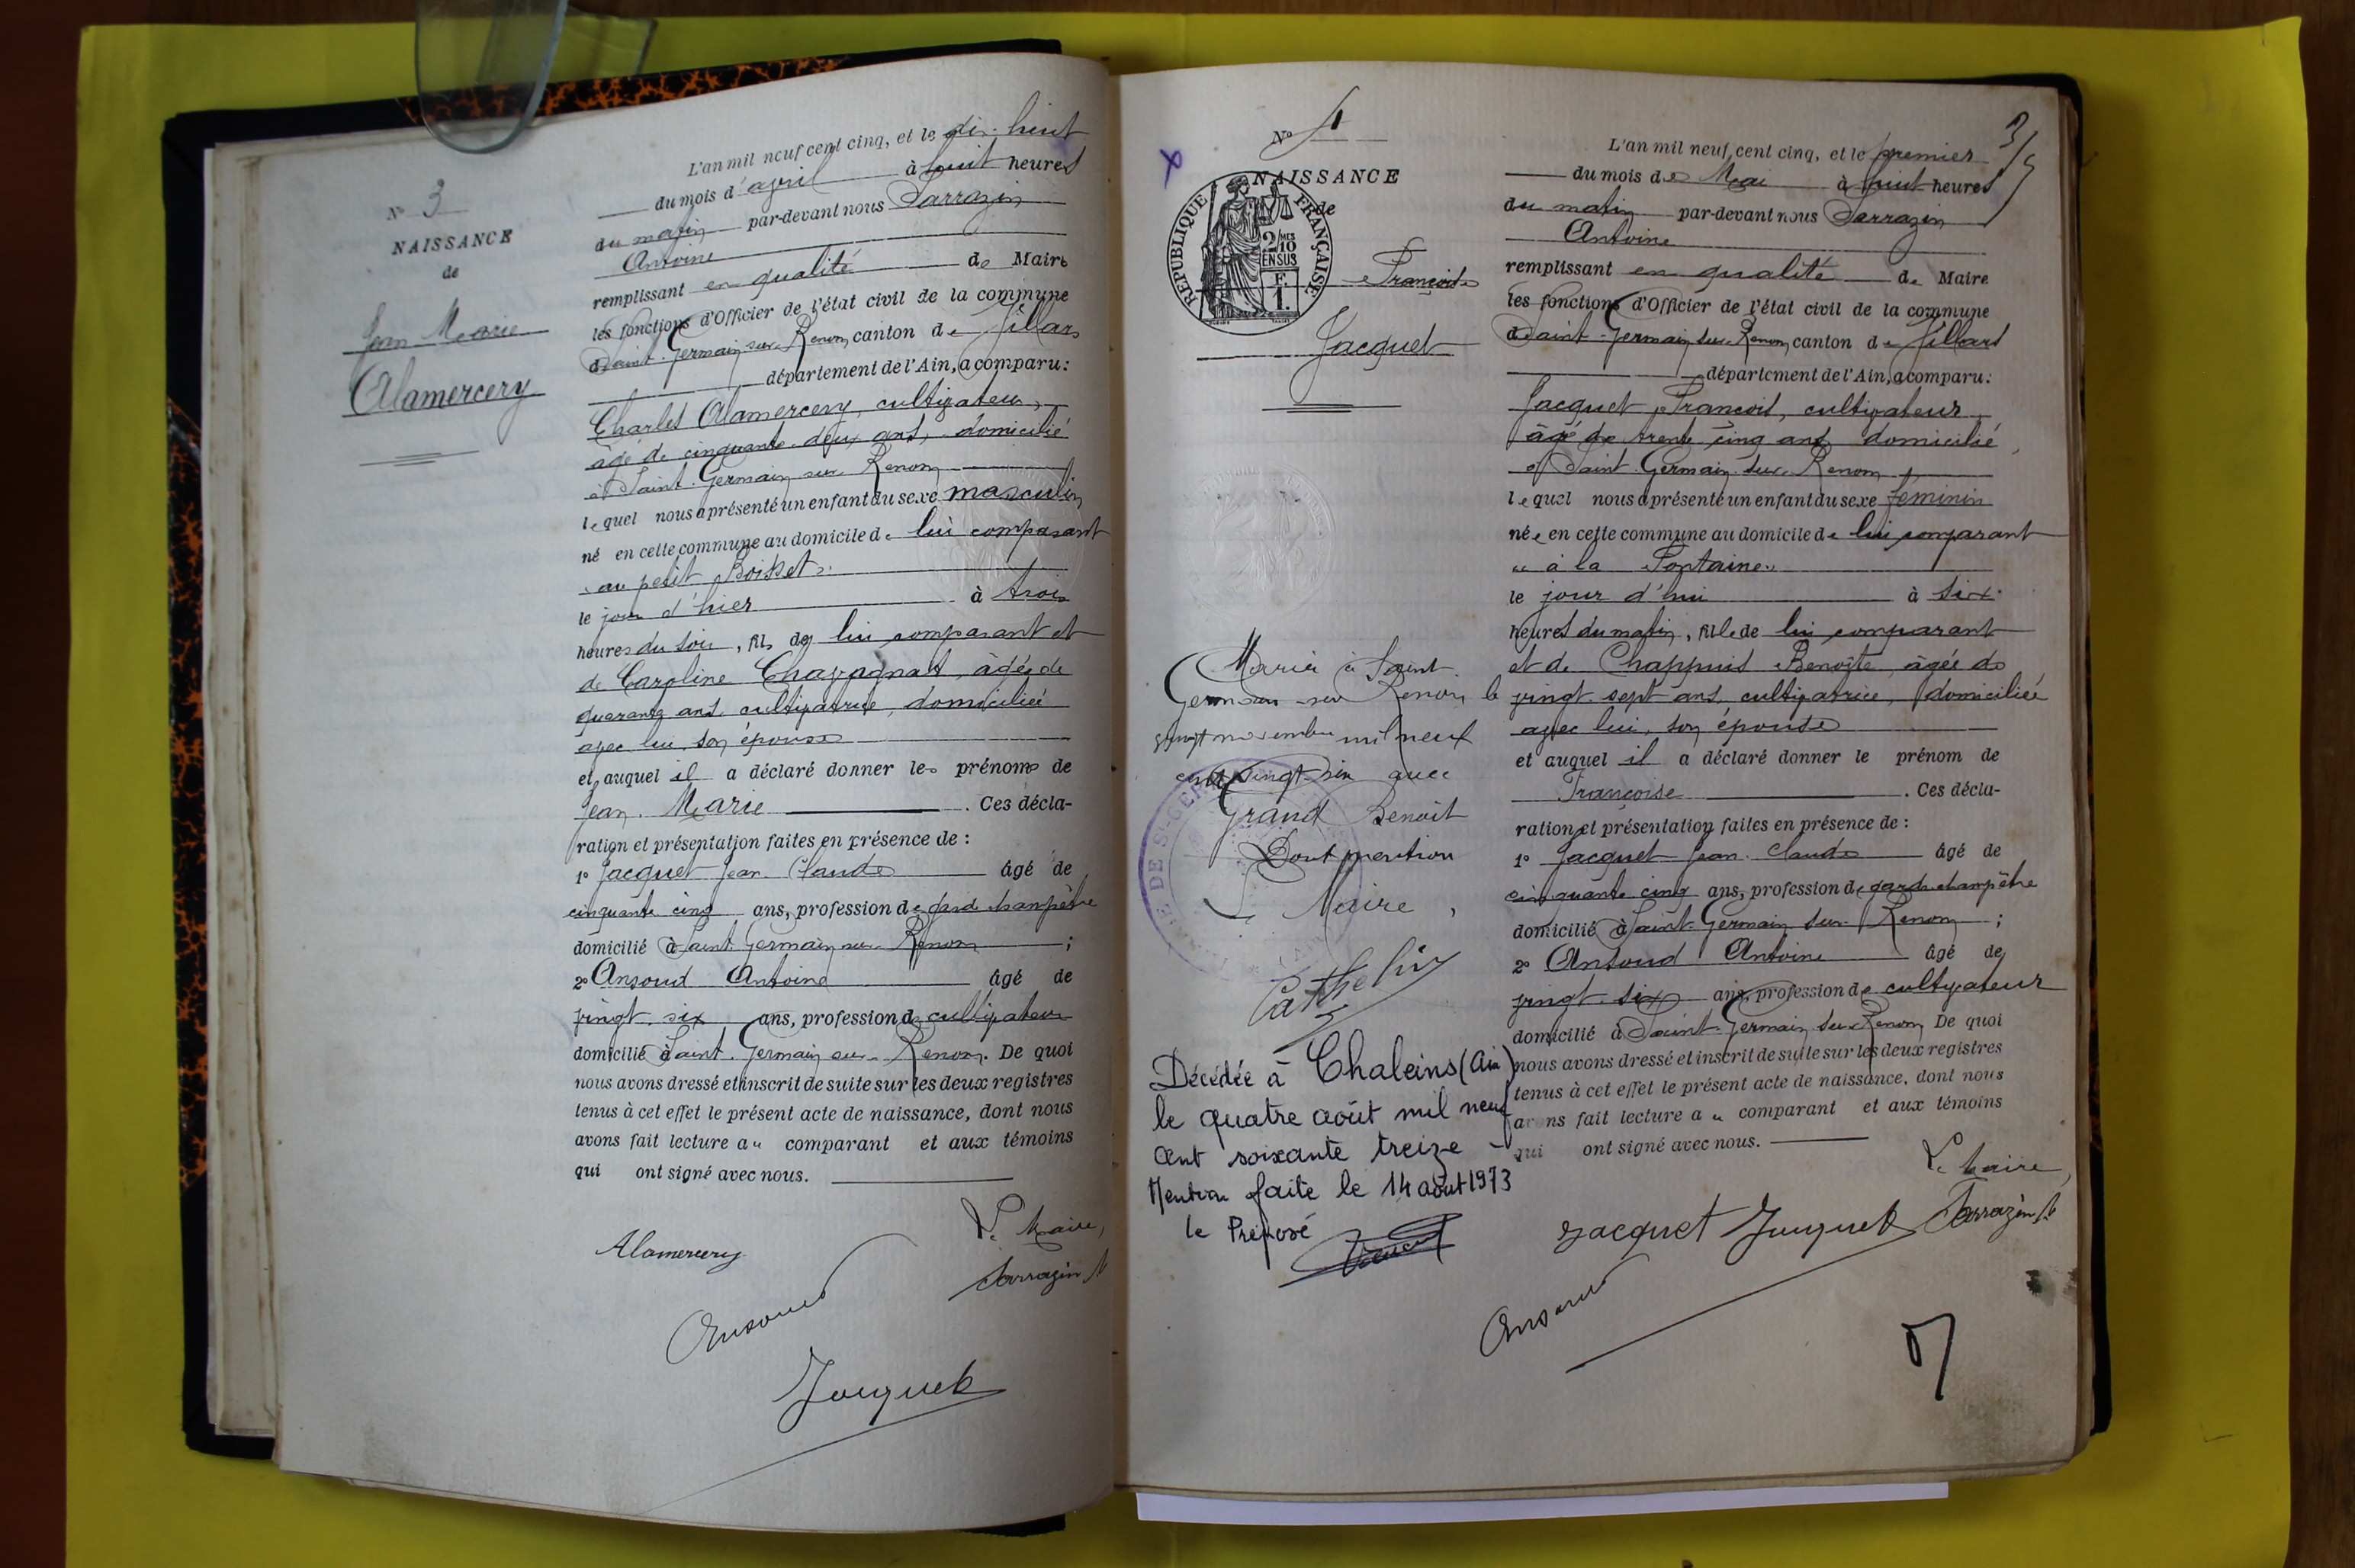 N° 3
NAISSANCE
de
Jean Marie
Alamercery
L'an mil neuf cent cinq, et le dix-huit
du mois d'avril à huit heures
du matin par-devant nous Sarrazin
Antoine
remplissant en qualité de Maire
les fonctions d'Officier de l'état civil de la commune
de Saint-Germain sur Renom, canton de Villars
département de l'Ain, a comparu:
Charles Alamercery, cultivateur,
âgé de cinquante-deux ans, domicilié
à Saint-Germain sur Renom
lequel nous a présenté un enfant du sexe masculin
né en cette commune au domicile de lui comparant
"au petit Boisset"
le jour d'hier à trois
heures du soir, fils de lui comparant et
de Caroline Chavagnat, âgée de
quarante ans, cultivatrice, domiciliée
avec lui, son épouse
et auquel il a déclaré donner les prénoms de
Jean Marie. Ces décla-
ration et présentation faites en présence de :
1° Jacquet Jean Claude âgé de
cinquante cinq ans, profession de garde champêtre
domicilié à Saint-Germain sur Renom ;
2° Ansoud Antoine âgé de
vingt-six ans, profession de cultivateur
domicilié à Saint-Germain sur Renom. De quoi
nous avons dressé et inscrit de suite sur les deux registres
tenus à cet effet le présent acte de naissance, dont nous
avons fait lecture au comparant et aux témoins
qui ont signé avec nous.
Le Maire,
Alamercery
Sarrazin A
Ansoud
Jacquet
N° 4
NAISSANCE
de
RÉPUBLIQUE FRANÇAISE
2/10MES
EN SUS
F.
1.
Françoise
Jacquet
Mariée à Saint-
Germain-sur Renom le
vingt novembre mil neuf
cent vingt-six avec
Grand Benoît
Dont mention
Le Maire,
Cathelin
Décédée à Chaleins (Ain)
le quatre août mil neuf
cent soixante treize -
Mention faite le 14 août 1973
le Préposé
3/5
L'an mil neuf cent cinq, et le premier
du mois de Mai à huit heures
du matin par-devant nous Sarrazin
Antoine
remplissant en qualité de Maire
les fonctions d'Officier de l'état civil de la commune
de Saint-Germain sur Renom, canton de Villars
département de l'Ain, a comparu:
Jacquet François, cultivateur
âgé de trente cinq ans, domicilié
à Saint-Germain-sur-Renom,
lequel nous a présenté un enfant du sexe féminin
née en cette commune au domicile de lui comparant
"à la Fontaine"
le jour d'hui à six
heures du matin, fille de lui comparant
et de Chappuis Benoîte, âgée de
vingt-sept ans, cultivatrice, domiciliée
avec lui, son épouse
et auquel il a déclaré donner le prénom de
Françoise. Ces décla-
ration et présentation faites en présence de :
1° Jacquet Jean-Claude âgé de
cinquante cinq ans, profession de garde champêtre
domicilié à Saint-Germain sur Renom ;
2° Ansoud Antoine âgé de
vingt-six ans, profession de cultivateur
domicilié à Saint-Germain sur Renom De quoi
nous avons dressé et inscrit de suite sur les deux registres
tenus à cet effet le présent acte de naissance, dont nous
avons fait lecture au comparant et aux témoins
qui ont signé avec nous.
Le Maire,
Jacquet Jacquet Sarrazin A
Ansoud